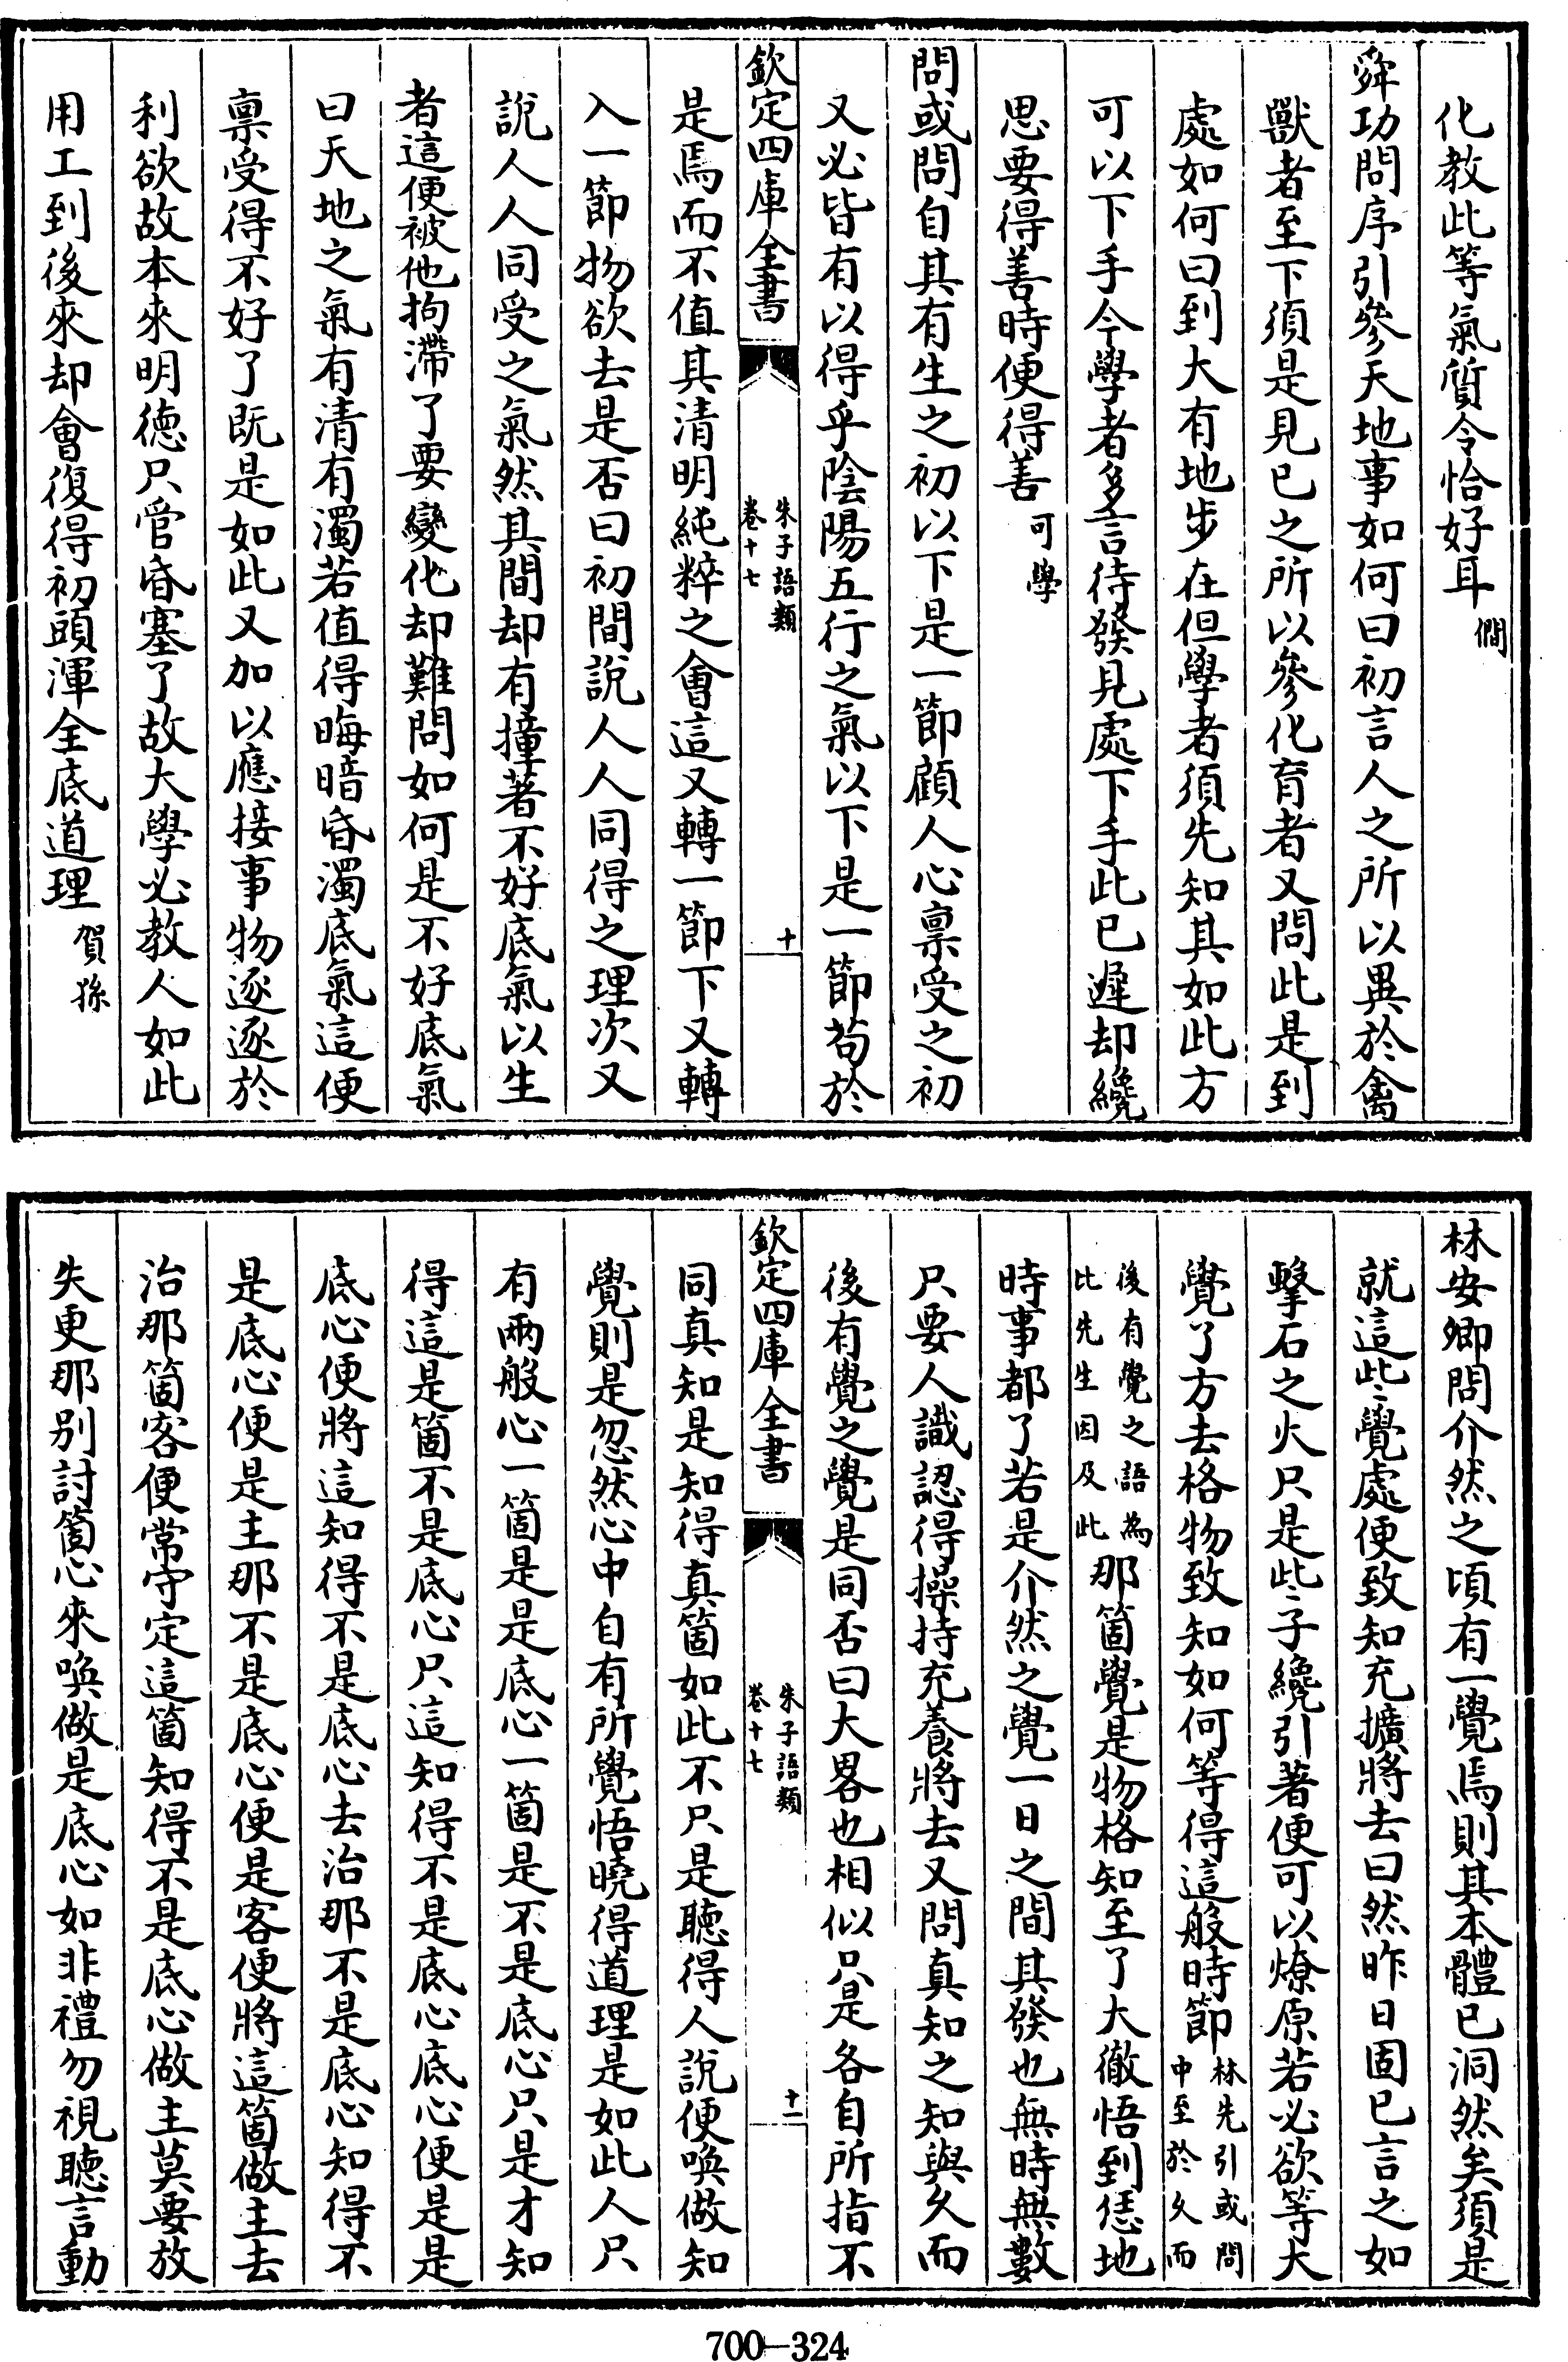 化教此等氣質令恰好耳 僩
舜功問序引參天地事如何曰初言人之所以異於禽
獸者至下須是見已之所以參化育者又問此是到
處如何曰到大有地步在但學者須先知其如此方
可以下手今學者多言待發見處下手此已遲却纔
思要得善時便得善 可學
問或問自其有生之初以下是一節顧人心稟受之初
又必皆有以得乎陰陽五行之氣以下是一節苟於
欽定四庫全書 朱子語類 卷十七 十
是焉而不值其清明純粹之會這又轉一節下又轉
入一節物欲去是否曰初間說人人同得之理次又
說人人同受之氣然其間却有撞著不好底氣以生
者這便被他拘滯了要變化却難問如何是不好底氣
曰天地之氣有清有濁若值得晦暗昏濁底氣這便
稟受得不好了既是如此又加以應接事物逐逐於
利欲故本來明德只管昏塞了故大學必教人如此
用工到後來却會復得初頭渾全底道理 賀孫
林安卿問介然之頃有一覺焉則其本體已洞然矣須是
就這些覺處便致知充擴將去曰然昨日固已言之如
擊石之火只是些子纔引著便可以燎原若必欲等大
覺了方去格物致知如何等得這般時節 林先引或問中至於久而
後有覺之語為比先生因及此 那箇覺是物格知至了大徹悟到恁地
時事都了若是介然之覺一日之間其發也無時無數
只要人識認得操持充養將去又問真知之知與久而
後有覺之覺是同否曰大畧也相似只是各自所指不
欽定四庫全書 朱子語類 卷十七 十一
同真知是知得真箇如此不只是聽得人說便喚做知
覺則是忽然心中自有所覺悟曉得道理是如此人只
有兩般心一箇是是底心一箇是不是底心只是才知
得這是箇不是底心只這知得不是底心底心便是是
底心便將這知得不是底心去治那不是底心知得不
是底心便是主那不是底心便是客便將這箇做主去
治那箇客便常守定這箇知得不是底心做主莫要放
失更那别討箇心來喚做是底心如非禮勿視聽言動
700-324